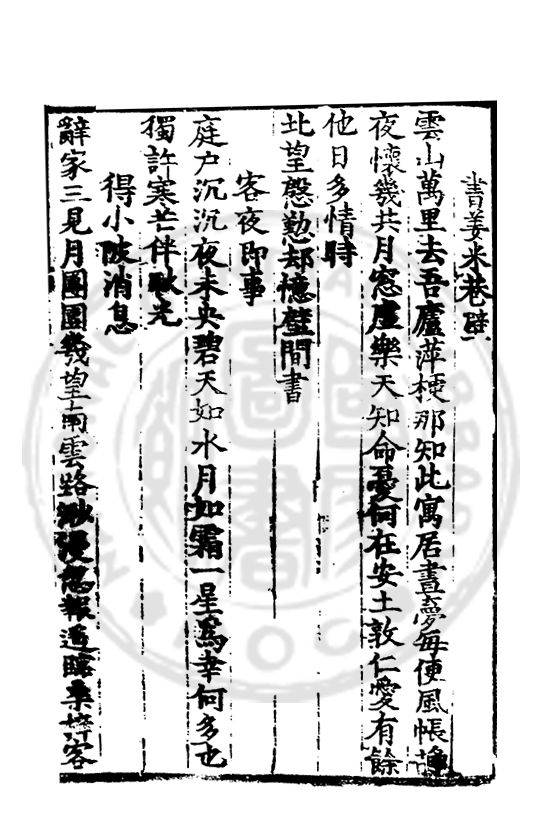 書姜米巷壁
雲山萬里去吾廬萍梗那知此寓居晝夢每便風帳
夜懷幾共月窓虛樂天知命憂何在安土敦仁愛有餘
他日多情時
北望慇懃却憶壁間書
客夜即事
庭户沉沉夜未央碧天如水月如霜一星爲幸何多也
獨許寒芒伴耿光
得小陂消息
辭家三見月團圓幾望南雲路渺漫忽報遞
客